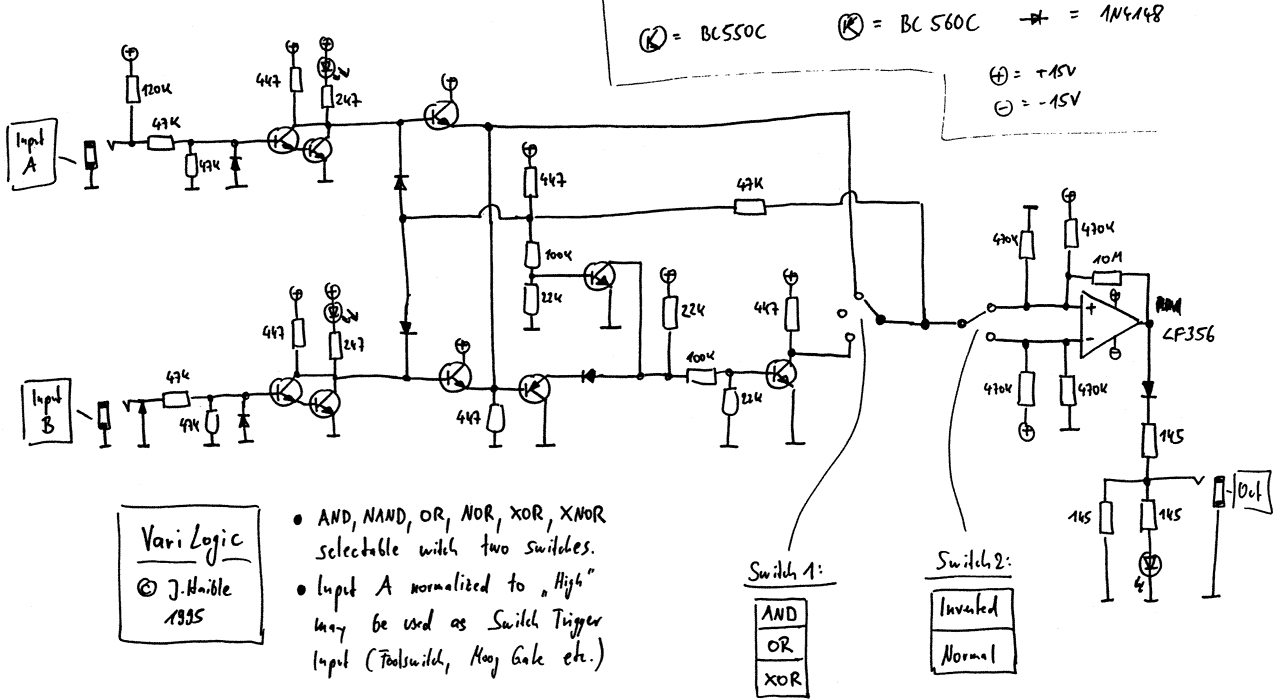 = BC550C
= BC560C
= 1N4148
⊕ = +15V
⊖ = -15V
Input
A
120K
47K
47K
4k7
2k7
4k7
47K
100K
22K
Input
B
47K
47K
4k7
2k7
4k7
22K
100K
22K
4k7
470K
470K
10M
+
-
LF356
470K
470K
1k5
1k5
1k5
Out
Vari Logic
© J. Haible
1995
• AND, NAND, OR, NOR, XOR, XNOR
selectable witch two switches.
• Input A normalized to „High"
may be used as Switch Trigger
Input (Footswitch, Moog Gate etc.)
Switch 1:
AND
OR
XOR
Switch 2:
Inverted
Normal